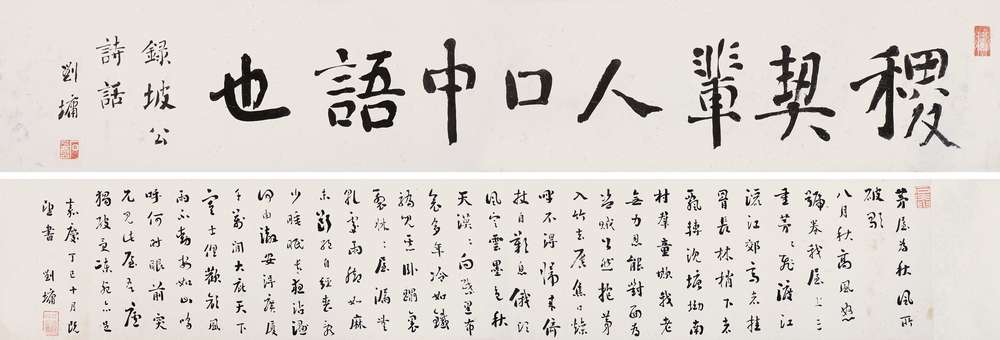 稷契輩人口中語也
錄坡公
詩話
劉墉
茅屋為秋風所
破歌
八月秋高風怒
號卷我屋上三
重茅〻飛渡江
灑江郊高者挂
罥長林梢下者
飄轉沈塘坳南
村羣童欺我老
無力忍能對面為
盜賊公然抱茅
入竹去脣焦口燥
呼不得歸來倚
杖自歎息俄頃
風定雲墨色秋
天漠〻向昏黑布
衾多年冷如鐵
驕兒惡卧蹋裏
裂牀〻屋漏無
乾處雨脚如麻
未斷自經喪亂
少睡眠長夜沾濕
何由徹安得廣厦
千萬間大庇天下
寒士俱歡顏風
雨不動安如山嗚
呼何時眼前突
兀見此屋吾廬
獨破受凍死亦足
嘉慶丁巳十月既
望書 劉墉